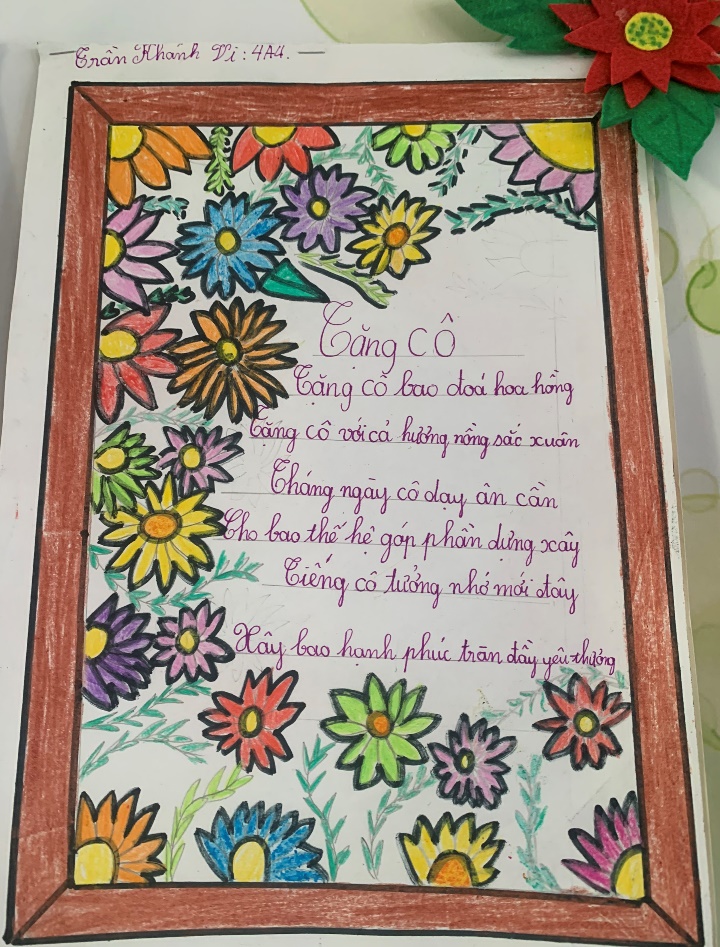 Trần Khánh Vi : 4A4.
Tặng CÔ
Tặng cô bao đoá hoa hồng
Tặng cô với cả hương nồng sắc xuân
Tháng ngày cô dạy ân cần
Cho bao thế hệ góp phần dựng xây
Tiếng cô tưởng nhớ mới đây
Xây bao hạnh phúc tràn đầy yêu thương